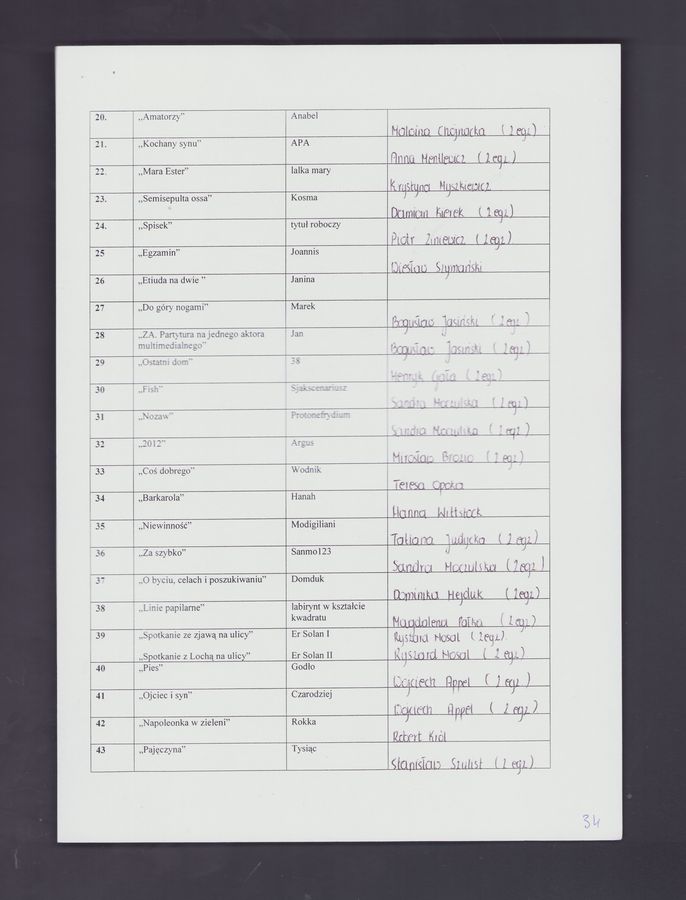 20. „Amatorzy” Anabel
Malwina Chojnacka (2 egz.)
21. „Kochany synu” APA
Anna Mentlewicz (2 egz.)
22. „Mara Ester” lalka mary
Krystyna Myszkiewicz
23. „Semisepulta ossa” Kosma
Damian Kierek (2 egz.)
24. „Spisek” tytuł roboczy
Piotr Ziniewicz (2 egz.)
25 „Egzamin” Joannis
Wiesław Szymański
26 „Etiuda na dwie ” Janina
27 „Do góry nogami” Marek
Bogusław Jasiński (2 egz.)
28 „ZA. Partytura na jednego aktora Jan
multimedialnego”
Bogusław Jasiński (2 egz.)
29 „Ostatni dom” 38
Henryk Gała (2 egz.)
30 „Fish” Sjakscenariusz
Sandra Moczulska (2 egz.)
31 „Nozaw” Protonefrydium
Sandra Moczulska (2 egz.)
32 „2012” Argus
Mirosław Brozio (2 egz.)
33 „Coś dobrego” Wodnik
Teresa Opoka
34 „Barkarola” Hanah
Hanna Wittstock
35 „Niewinność” Modigiliani
Tatiana Judycka (2 egz.)
36 „Za szybko” Sanmo123
Sandra Moczulska (2 egz.)
37 „O byciu, celach i poszukiwaniu” Domduk
Dominika Hejduk (2 egz.)
38 „Linie papilarne” labirynt w kształcie
kwadratu
Magdalena (2 egz.)
39 „Spotkanie ze zjawą na ulicy” Er Solan I Ryszard Mosal (2 egz.)
„Spotkanie z Lochą na ulicy” Er Solan II Ryszard Mosal (2 egz.)
40 „Pies” Godło
Wojciech Appel (2 egz.)
41 „Ojciec i syn” Czarodziej
Wojciech Appel (2 egz.)
42 „Napoleonka w zieleni” Rokka
Robert Król
43 „Pajęczyna” Tysiąc
Stanisław Szulist (2 egz.)
34